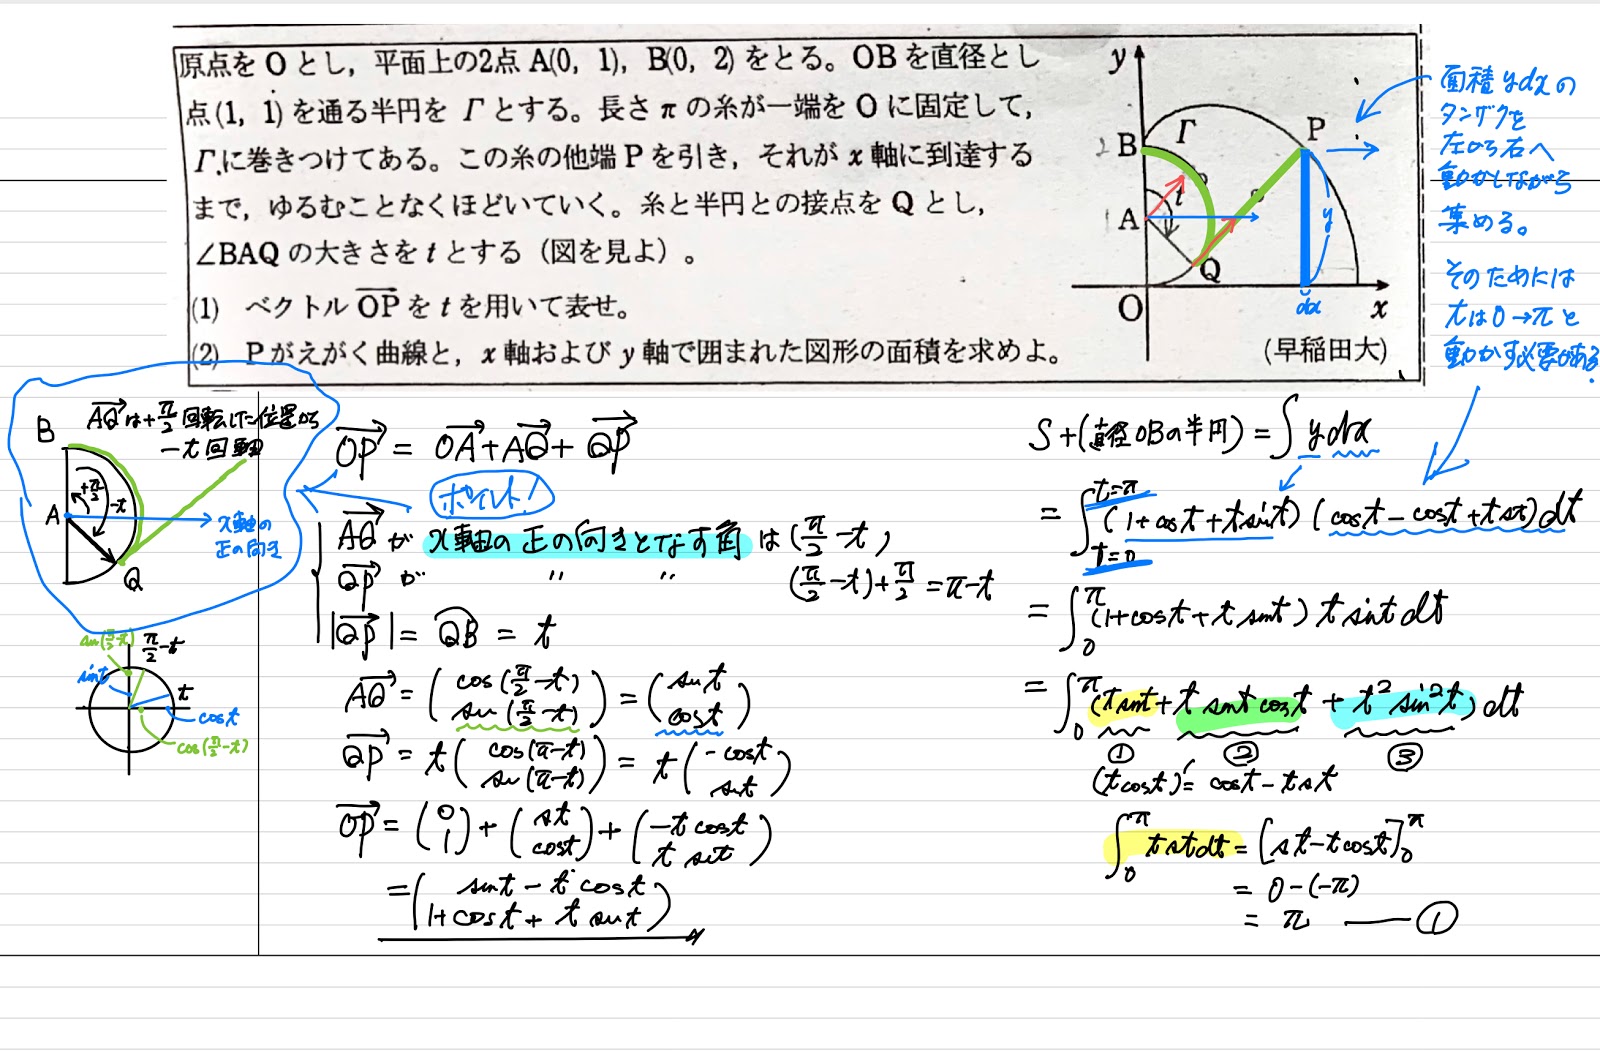 原点を O とし，平面上の2点 A(0, 1)，B(0, 2) をとる。OB を直径とし
点(1, 1) を通る半円を Γ とする。長さ π の糸が一端を O に固定して，
Γ に巻きつけてある。この糸の他端 P を引き，それが x 軸に到達する
まで，ゆるむことなくほどいていく。糸と半円との接点を Q とし，
∠BAQ の大きさを t とする（図を見よ）。
(1) ベクトル OP→ を t を用いて表せ。
(2) P がえがく曲線と，x 軸および y 軸で囲まれた図形の面積を求めよ。
(早稲田大)
y
B
Γ
P
2
1
A
t
Q
O
x
y
dx
面積 ydxの
タンザクを
左から右へ
動かしながら
集める。
そのためには
tは0→πと
動かす必要がある.
AQ→は+π/2回転した位置から
−t回転
B
+π/2
−t
A
Q
x軸の
正の向き
sin(π/2−t)
π/2−t
sint
t
cost
cos(π/2−t)
OP→ = OA→+AQ→+QP→
ポイント!
AQ→が x軸の正の向きとなす角は(π/2−t),
QP→が 〃 〃 (π/2−t)+π/2=π−t
|QP→| = QB⌒ = t
AQ→ = (cos(π/2−t) sin(π/2−t)) = (sint cost)
QP→ = t(cos(π−t) sin(π−t)) = t(−cost sint)
OP→ = (0 1)+(sint cost)+(−tcost t sint)
=(sint−t cost 1+cost+t sint)
S+(直径OBの半円) = ∫ydx
= ∫t=0 t=π (1+cost+tsint)(cost−cost+tsint)dt
= ∫0 π (1+cost+t sint) t sint dt
= ∫0 π (t sint+t sint cost+t² sin²t) dt
① ② ③
(tcost)′= cost−tsint
∫0 π tsintdt = [sint−tcost]0 π
= 0−(−π)
= π ── ①